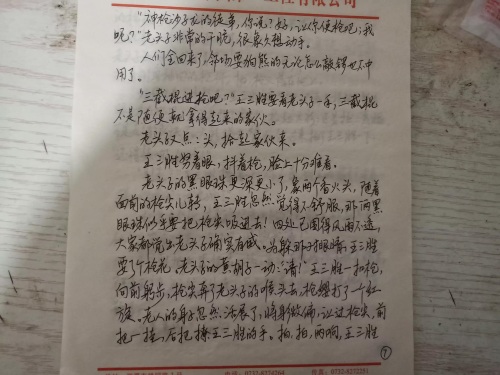 “神枪沙子龙的徒弟,你说?好,让你使枪吧;我
呢?”老头子非常的干脆,很象久想动手。
人们全回来了,邻场耍狗熊的无论怎么敲锣也不中
用了。
“三截棍进枪吧?”王三胜要看老头子一手,三截棍
不是随便就拿得起来的家伙。
老头子又点点头,拾起家伙来。
王三胜努着眼,抖着枪,脸上十分难看。
老头子的黑眼珠更深更小了,象两个香火头,随着
面前的枪尖儿转,王三胜忽然觉得不舒服,那两黑
眼珠似乎要把枪尖吸进去!四处已围得风雨不透,
大家都觉出老头子确实有威。为躲那对眼睛,王三胜
耍了个枪花。老头子的黄胡子一动:“请!”王三胜一扣枪,
向前躬步,枪尖奔了老头子的喉头去,枪缨打了一个红
旋。老人的身子忽然活展了,将身微偏,让过枪尖,前
把一挂,后把撩王三胜的手。拍,拍,两响,王三胜
7